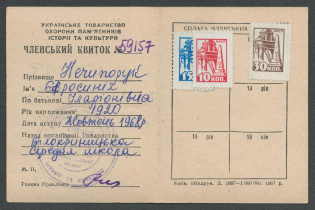 УКРАЇНСЬКЕ ТОВАРИСТВО
ОХОРОНИ ПАМ'ЯТНИКІВ
ІСТОРІЇ ТА КУЛЬТУРИ
ЧЛЕНСЬКИЙ КВИТОК № 59157
Прізвище Нечипорук
Ім'я Єфросинія
По батькові Іларіонівна
Рік народження 1920
Дата вступу Жовтень 1968 р.
Назва організації Товариства
Білокриницька
середня школа
М. П.
Голова Правління
СПЛАТА ЧЛЕНСЬКИХ
15
10 КОП.
30 КОП.
19 рік
19 рік
19 рік
Київ, облдрук. З. 1887—1 000 000. 1967 р.